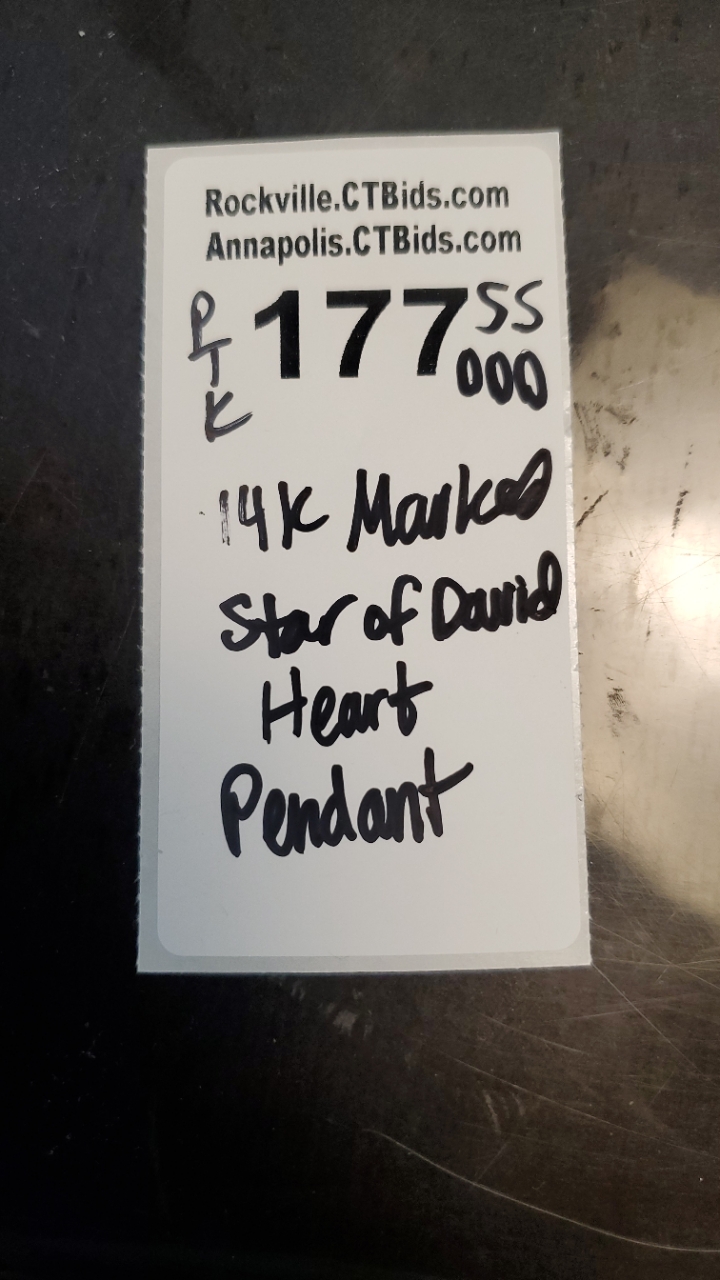 Rockville.CTBids.com
Annapolis.CTBids.com
PTK 177 SS
000
14K Marked
Star of David
Heart
Pendant